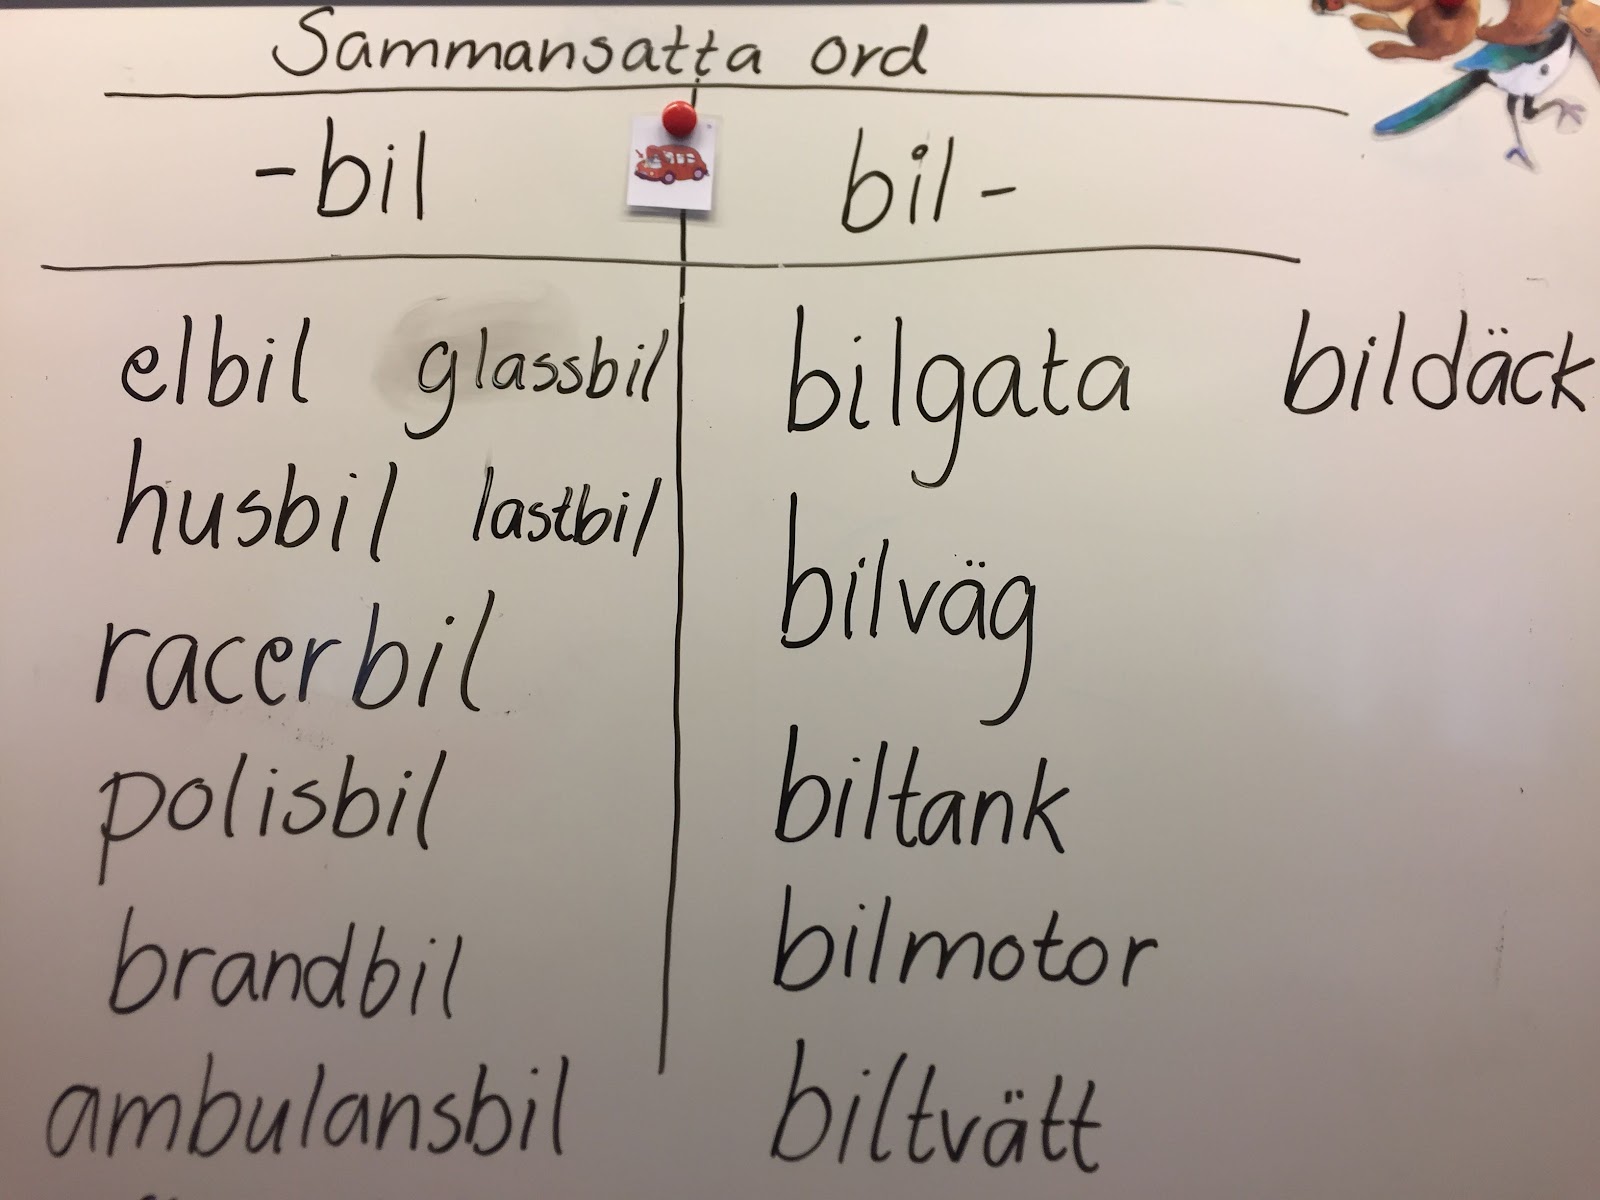 Sammansatta ord
-bil bil-
elbil glassbil bilgata bildäck
husbil lastbil
bilväg
racerbil
polisbil biltank
brandbil bilmotor
ambulansbil biltvätt